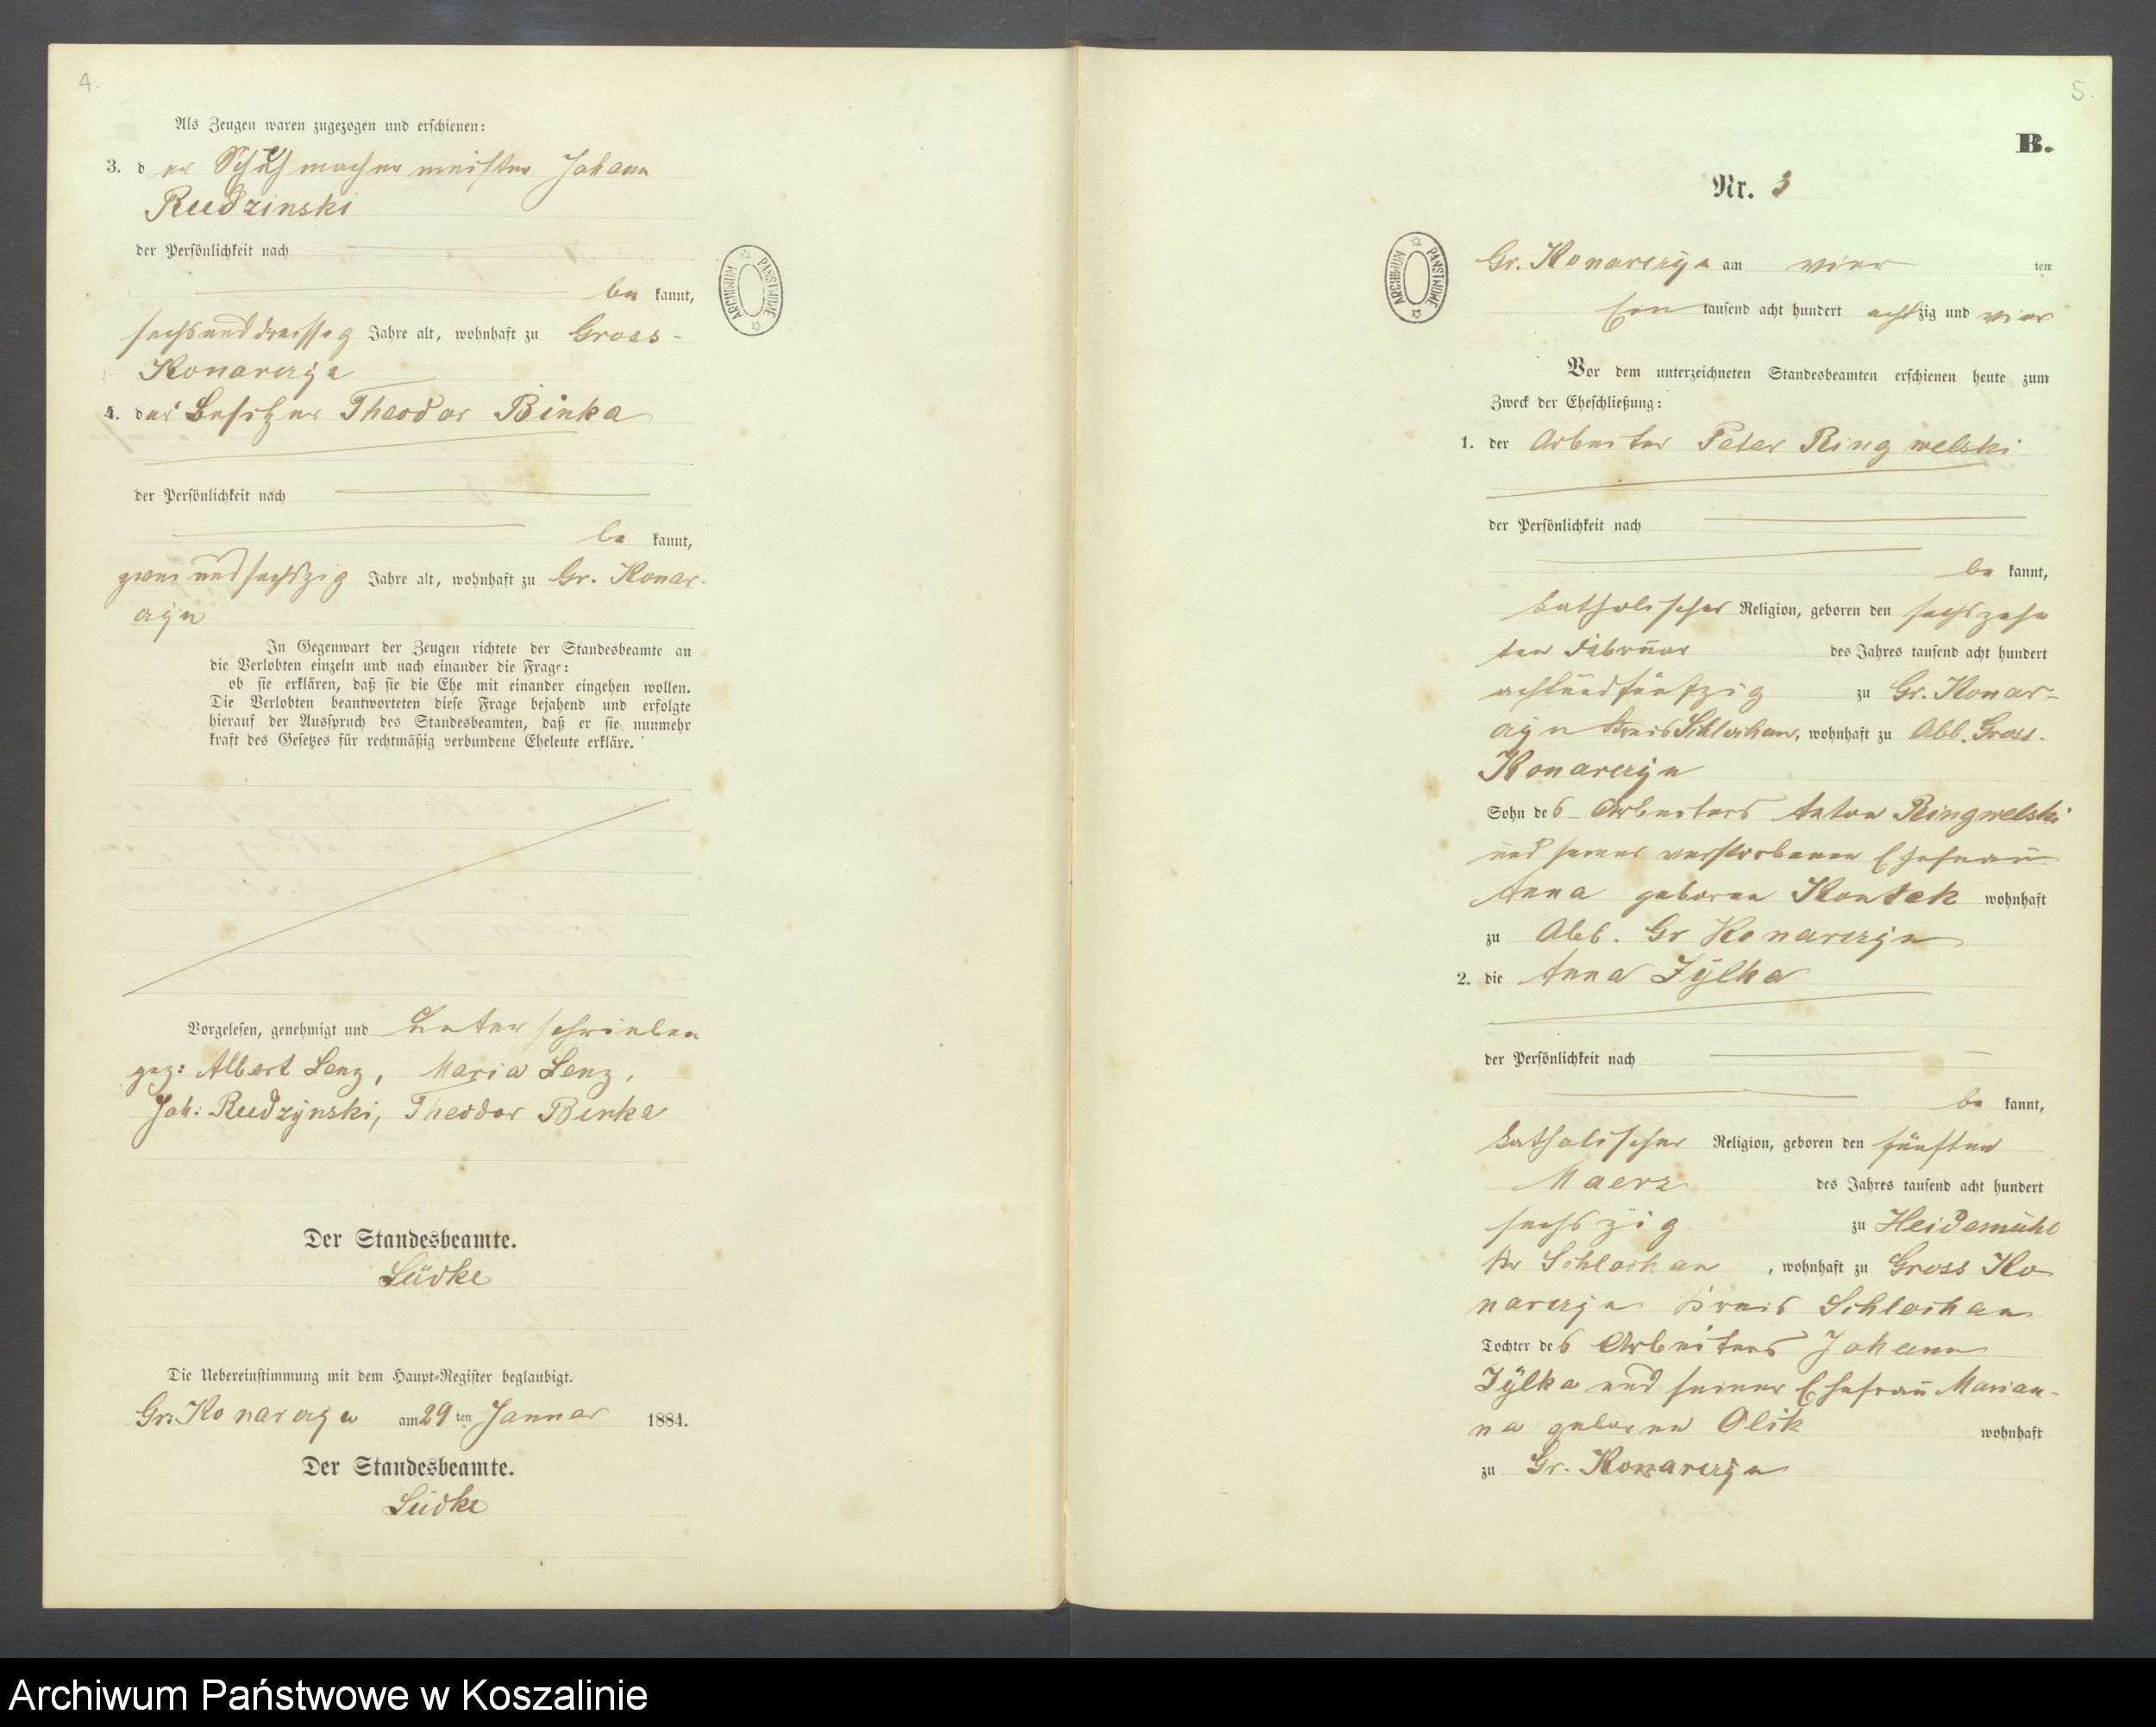 4.
Als Zeugen waren zugezogen und erschienen:
3. der Schuhmachermeister Johann
Rudzinski
der Persönlichkeit nach
be kannt,
sechsunddreissig Jahre alt, wohnhaft zu Gross-
Konarczyn
4. der Besitzer Theodor Binka
der Persönlichkeit nach
be kannt,
zweiundsechszig Jahre alt, wohnhaft zu Gr. Konar-
czyn
In Gegenwart der Zeugen richtete der Standesbeamte an
die Verlobten einzeln und nach einander die Frage:
ob sie erklären, daß sie die Ehe mit einander eingehen wollen.
Die Verlobten beantworteten diese Frage bejahend und erfolgte
hierauf der Ausspruch des Standesbeamten, daß er sie nunmehr
kraft des Gesetzes für rechtmäßig verbundene Eheleute erkläre.
Vorgelesen, genehmigt und unterschrieben
gez: Albert Lenz, Maria Lenz,
Joh: Rudzynski, Theodor Binka
Der Standesbeamte.
Lüdke
Die Uebereinstimmung mit dem Haupt-Register beglaubigt.
Gr. Konarczyn am 29 ten Januar 1884.
Der Standesbeamte.
Lüdke
ARCHIWUM PAŃSTWOWE
5.
B.
Nr. 3
ARCHIWUM PAŃSTWOWE
Gr. Konarczyn am vier ten
Ein tausend acht hundert achtzig und vier
Vor dem unterzeichneten Standesbeamten erschienen heute zum
Zweck der Eheschließung:
1. der Arbeiter Peter Ringwelski
der Persönlichkeit nach
be kannt,
katholischer Religion, geboren den sechszehn
ten Februar des Jahres tausend acht hundert
achtundfünfzig zu Gr. Konar-
czyn Kreis Schlochau, wohnhaft zu Abb. Gross-
Konarczyn
Sohn des Arbeiters Anton Ringwelski
und seiner verstorbenen Ehefrau
Anna geborene Kontek wohnhaft
zu Abb. Gr Konarczyn
2. die Anna Zylka
der Persönlichkeit nach
be kannt,
katholischer Religion, geboren den fünften
Maerz des Jahres tausend acht hundert
sechszig zu Heidemühl
Kr Schlochau, wohnhaft zu Gross Ko
narczyn Kreis Schlochau
Tochter des Arbeiters Johann
Zylka und seiner Ehefrau Marian-
na geborene Olik wohnhaft
zu Gr. Konarczyn
Archiwum Państwowe w Koszalinie